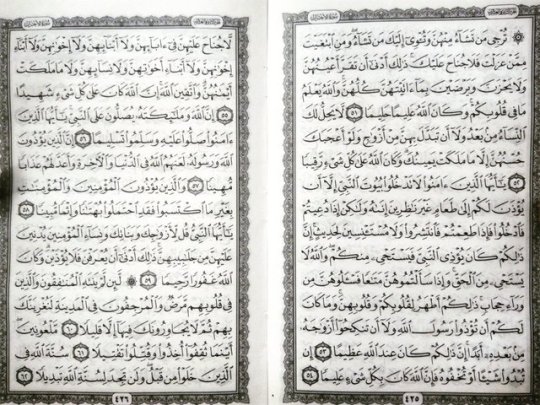 ۞ تُرْجِي مَن تَشَآءُ مِنْهُنَّ وَتُـْٔوِيٓ إِلَيْكَ مَن تَشَآءُۖ وَمَنِ ٱبْتَغَيْتَ
مِمَّنْ عَزَلْتَ فَلَا جُنَاحَ عَلَيْكَۚ ذَٰلِكَ أَدْنَىٰٓ أَن تَقَرَّ أَعْيُنُهُنَّ
وَلَا يَحْزَنَّ وَيَرْضَيْنَ بِمَآ ءَاتَيْتَهُنَّ كُلُّهُنَّۚ وَٱللَّهُ يَعْلَمُ
مَا فِي قُلُوبِكُمْۚ وَكَانَ ٱللَّهُ عَلِيمًا حَلِيمًا ٥١ لَّا يَحِلُّ لَكَ
ٱلنِّسَآءُ مِنۢ بَعْدُ وَلَآ أَن تَبَدَّلَ بِهِنَّ مِنْ أَزْوَٰجٍ وَلَوْ أَعْجَبَكَ
حُسْنُهُنَّ إِلَّا مَا مَلَكَتْ يَمِينُكَۗ وَكَانَ ٱللَّهُ عَلَىٰ كُلِّ شَيْءٍ رَّقِيبًا
٥٢ يَٰٓأَيُّهَا ٱلَّذِينَ ءَامَنُوا۟ لَا تَدْخُلُوا۟ بُيُوتَ ٱلنَّبِيِّ إِلَّآ أَن
يُؤْذَنَ لَكُمْ إِلَىٰ طَعَامٍ غَيْرَ نَٰظِرِينَ إِنَىٰهُ وَلَٰكِنْ إِذَا دُعِيتُمْ
فَٱدْخُلُوا۟ فَإِذَا طَعِمْتُمْ فَٱنتَشِرُوا۟ وَلَا مُسْتَـْٔنِسِينَ لِحَدِيثٍۚ إِنَّ
ذَٰلِكُمْ كَانَ يُؤْذِي ٱلنَّبِيَّ فَيَسْتَحْيِۦ مِنكُمْۖ وَٱللَّهُ لَا
يَسْتَحْيِۦ مِنَ ٱلْحَقِّۚ وَإِذَا سَأَلْتُمُوهُنَّ مَتَٰعًا فَسْـَٔلُوهُنَّ مِن
وَرَآءِ حِجَابٍۚ ذَٰلِكُمْ أَطْهَرُ لِقُلُوبِكُمْ وَقُلُوبِهِنَّۚ وَمَا كَانَ
لَكُمْ أَن تُؤْذُوا۟ رَسُولَ ٱللَّهِ وَلَآ أَن تَنكِحُوٓا۟ أَزْوَٰجَهُۥ
مِنۢ بَعْدِهِۦٓ أَبَدًاۚ إِنَّ ذَٰلِكُمْ كَانَ عِندَ ٱللَّهِ عَظِيمًا ٥٣ إِن
تُبْدُوا۟ شَيْـًٔا أَوْ تُخْفُوهُ فَإِنَّ ٱللَّهَ كَانَ بِكُلِّ شَيْءٍ عَلِيمًا ٥٤
٤٢٥
لَّا جُنَاحَ عَلَيْهِنَّ فِيٓ ءَابَآئِهِنَّ وَلَآ أَبْنَآئِهِنَّ وَلَآ إِخْوَٰنِهِنَّ وَلَآ أَبْنَآءِ
إِخْوَٰنِهِنَّ وَلَآ أَبْنَآءِ أَخَوَٰتِهِنَّ وَلَا نِسَآئِهِنَّ وَلَا مَا مَلَكَتْ
أَيْمَٰنُهُنَّۗ وَٱتَّقِينَ ٱللَّهَۚ إِنَّ ٱللَّهَ كَانَ عَلَىٰ كُلِّ شَيْءٍ شَهِيدًا
٥٥ إِنَّ ٱللَّهَ وَمَلَٰٓئِكَتَهُۥ يُصَلُّونَ عَلَى ٱلنَّبِيِّۚ يَٰٓأَيُّهَا ٱلَّذِينَ
ءَامَنُوا۟ صَلُّوا۟ عَلَيْهِ وَسَلِّمُوا۟ تَسْلِيمًا ٥٦ إِنَّ ٱلَّذِينَ يُؤْذُونَ
ٱللَّهَ وَرَسُولَهُۥ لَعَنَهُمُ ٱللَّهُ فِي ٱلدُّنْيَا وَٱلْءَاخِرَةِ وَأَعَدَّ لَهُمْ عَذَابًا
مُّهِينًا ٥٧ وَٱلَّذِينَ يُؤْذُونَ ٱلْمُؤْمِنِينَ وَٱلْمُؤْمِنَٰتِ
بِغَيْرِ مَا ٱكْتَسَبُوا۟ فَقَدِ ٱحْتَمَلُوا۟ بُهْتَٰنًا وَإِثْمًا مُّبِينًا ٥٨
يَٰٓأَيُّهَا ٱلنَّبِيُّ قُل لِّأَزْوَٰجِكَ وَبَنَاتِكَ وَنِسَآءِ ٱلْمُؤْمِنِينَ يُدْنِينَ
عَلَيْهِنَّ مِن جَلَٰبِيبِهِنَّۚ ذَٰلِكَ أَدْنَىٰٓ أَن يُعْرَفْنَ فَلَا يُؤْذَيْنَۗ وَكَانَ
ٱللَّهُ غَفُورًا رَّحِيمًا ٥٩ ۞ لَّئِن لَّمْ يَنتَهِ ٱلْمُنَٰفِقُونَ وَٱلَّذِينَ
فِي قُلُوبِهِم مَّرَضٌ وَٱلْمُرْجِفُونَ فِي ٱلْمَدِينَةِ لَنُغْرِيَنَّكَ
بِهِمْ ثُمَّ لَا يُجَاوِرُونَكَ فِيهَآ إِلَّا قَلِيلًا ٦٠ مَّلْعُونِينَۖ
أَيْنَمَا ثُقِفُوٓا۟ أُخِذُوا۟ وَقُتِّلُوا۟ تَقْتِيلًا ٦١ سُنَّةَ ٱللَّهِ فِي
ٱلَّذِينَ خَلَوْا۟ مِن قَبْلُۖ وَلَن تَجِدَ لِسُنَّةِ ٱللَّهِ تَبْدِيلًا ٦٢
٤٢٦